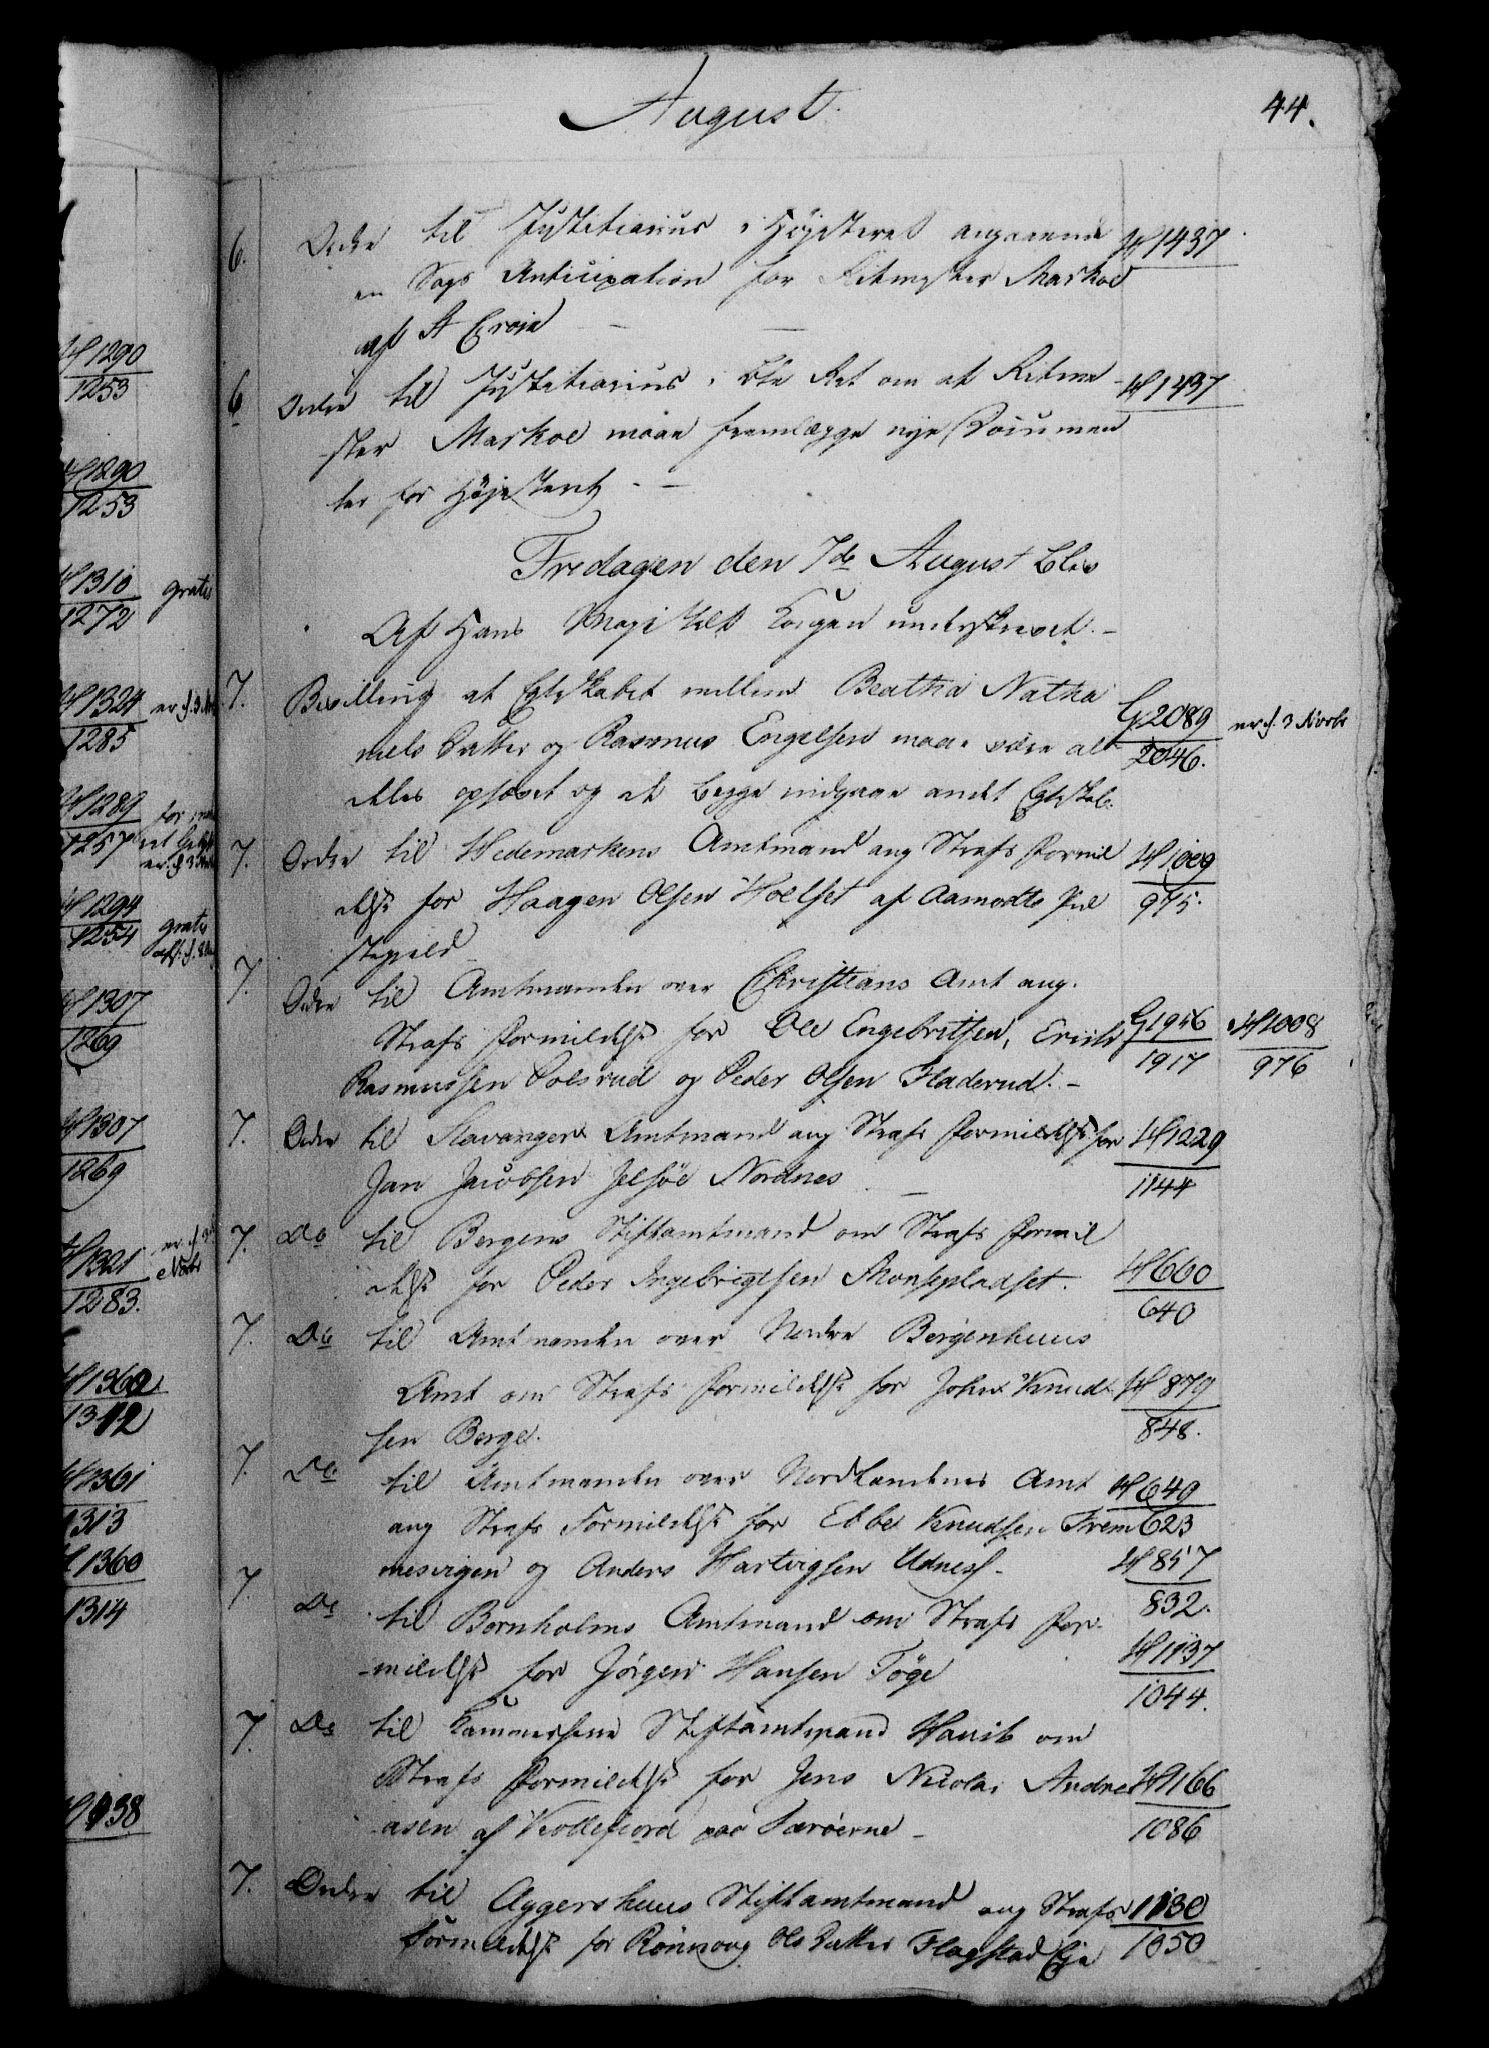 August.
44.
6. Ordre til Justitiarius i Højesteret angaaende H1437
en Sags Anticipation for Ritmester Markoe
af St Croix
6 Ordre til Justitiarius i Ret om at Ritme H1437
ster Markoe maae fremlægge nye Documen
ter for Højesteret
Fredagen den 7de August blev
Af Hans Majestæt Kongen underskrevet.
7. Bevilling at Egteskabet mellem Beatha Natha G2089 er f. 3 Novbr
nels Datter og Rasmus Engelsen maae være al 2046.
deles ophævet og at begge indgaae andet Egteskab.
7. Ordre til Hedemarkens Amtmand ang Strafs Formil H1009
delse for Haagen Olsen Hoelset af Aamodts Præ 975.
stegield
7. Ordre til Amtmanden over Christians Amt ang.
Strafs Formildelse for Ole Engebritsen, Erich G1956 H1008
Rasmussen Solsrud og Peder Olsen Fladerud. 1917 976
7. Ordre til Stavangers Amtmand ang Strafs Formildelse for H1229
Jan Jacobsen Jelsöe Nordnes 1144
7. Do til Bergens Stiftamtmand om Strafs Formil
delse for Peder Ingebrigtsen Monsepladset. H660
640
7. Do til Amtmanden over Nordre Bergenhuus
Amt om Strafs Formildelse for John Knud H879
sen Berge. 848.
7. Do til Amtmanden over Nordlandenes Amt H649
ang Strafs Formildelse for Ebbe Knudsen Frem 623
mesvigen og Anders Hartvigsen Udnes H857
832.
7. Do til Bornholms Amtmand om Strafs For
mildelse for Jörgen Hansen Töge H1137
1044.
7. Do til Kammerherre Stiftamtmand Hauch om
Strafs Formildelse for Jens Nicolai Andre H1166
asen af Kollefiord paa Færöerne 1086
7. Ordre til Aggershuus Stiftamtmand ang Strafs 1130
Formildelse for Rönnoug Ols Datter Flagstad Eje 1050
H1290
1253
H1290
1253
H1310 gratis
1272
H1324
1285
H1289
1257
H1294 gratis
1254
H1307
1269
H1307
1269
H1321
1283.
H1360
1312
H1361
1313
H1360
1314